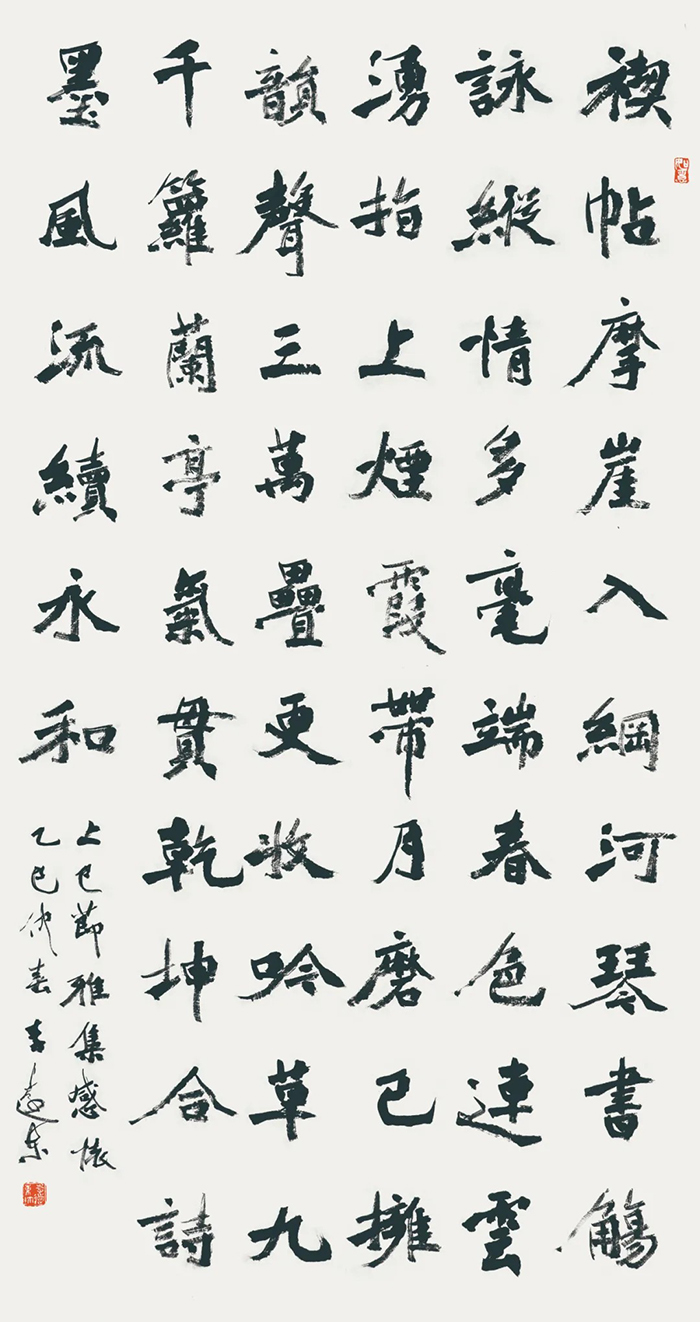 禊帖摩崖入綱河琴書觴
詠縱情多毫端春色連雲
湧指上煙霞帶月磨已擁
韻聲三萬疊更收吟草九
千籮蘭亭氣貫乾坤合詩
墨風流續永和
上巳節雅集感懷
乙巳仲春李遠東